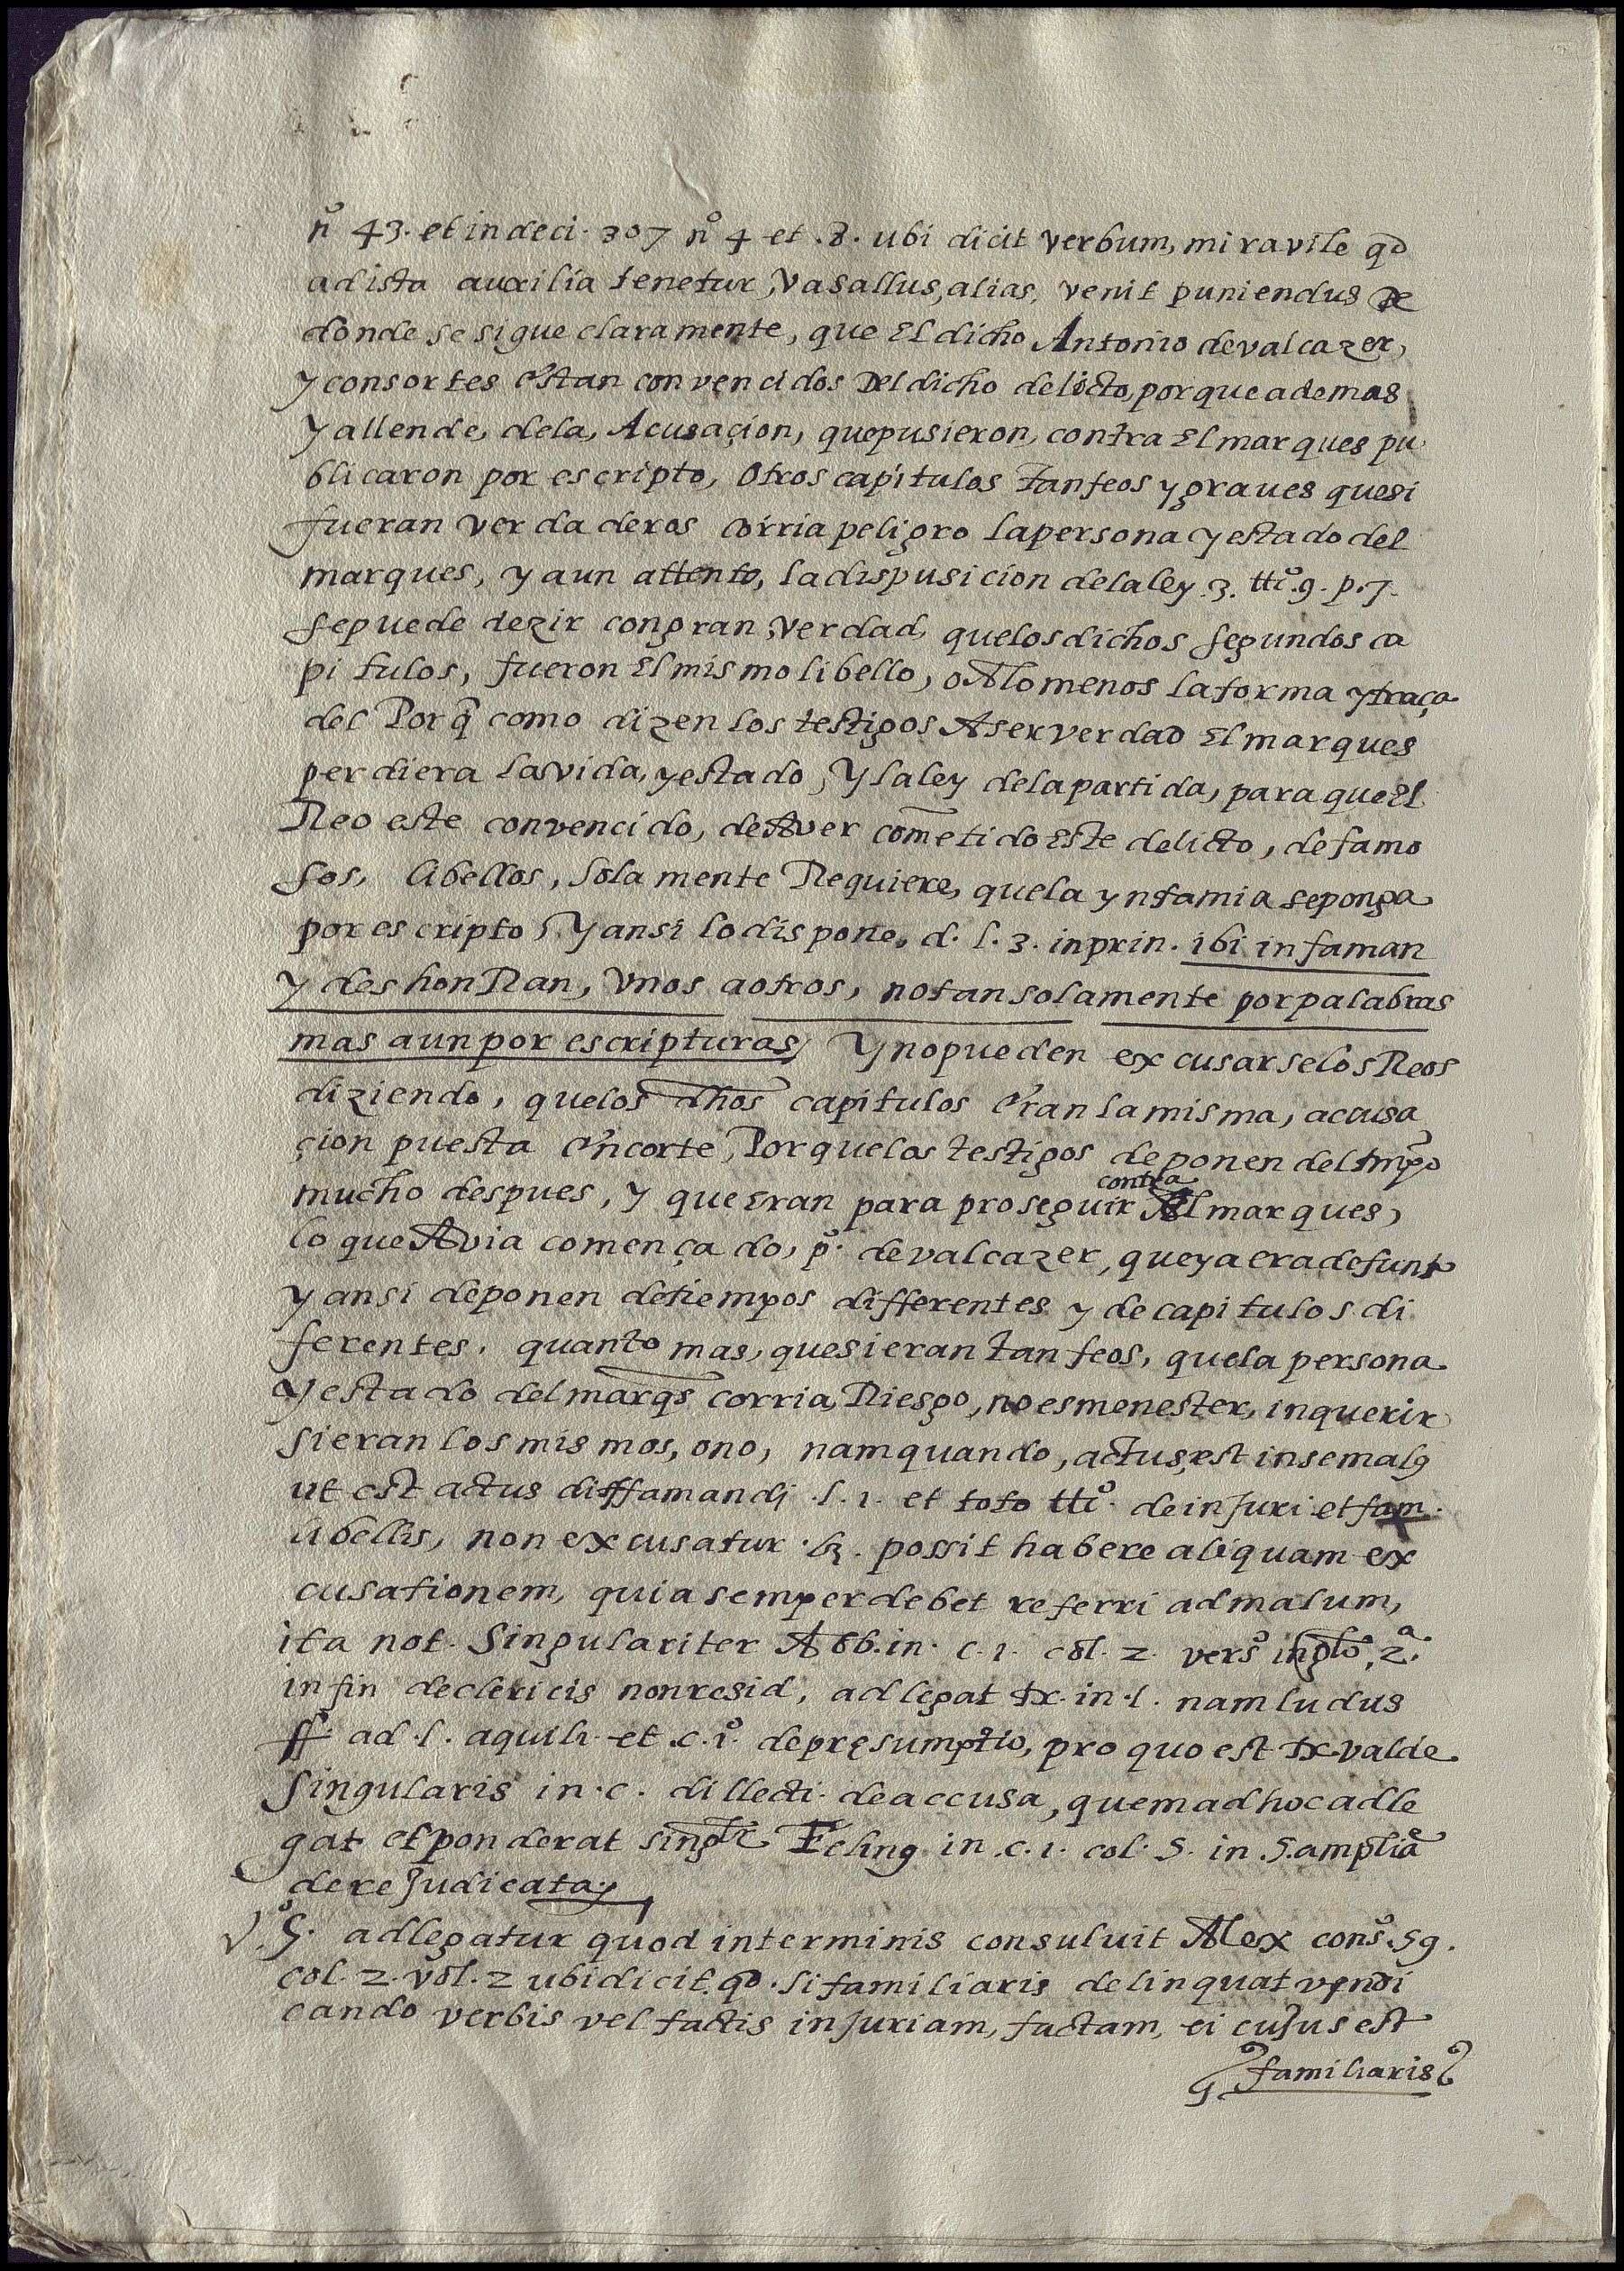 nº 43. et in deci. 307 nº 4 et .8. ubi dicit verbum, miravile qd
ad ista auxilia tenetur, Vasallus, alias, venit puniendus De
donde se sigue claramente, que El dicho Antonio de valcazer,
y consortes estan convencidos Del dicho delicto, porque ademas
y allende, dela, Acusaçion, que pusieron, contra El marques pu
blicaron por escripto, Otros capitulos tan feos y graues que si
fueran verdaderos corria peligro la persona y estado del
marques, y aun attento, la disposicion dela ley .3. ttº.9. p.7.
se puede dezir con gran, verdad, que los dichos segundos ca
pitulos, fueron El mismo libello, o Alomenos la forma y traça
del Porq̃ como dizen los testigos A ser verdad El marques
perdiera la vida, y estado, y la ley dela partida, para que El
Reo este convencido, de Aver cometido Este delicto, de famo
sos, libellos, sola mente Requiere, que la ynfamia se ponga
por escripto, y ansi lo dispone, d. l. 3. in prin. ibi infaman
y deshonRan, Vnos a otros, no tan solamente por palabras
mas aun por escripturas, y no pueden excusarse los Reos
diziendo, que los dhos capitulos eran la misma, acusa
çion puesta en corte, Porque los testigos deponen del tmpo
mucho despues, y que Eran para proseguir contra El marques,
lo que Avia començado, pº. de valcazer, que ya era defunto
y ansi deponen de tiempos differentes y de capitulos di
ferentes. quanto mas, que si eran tan feos, que la persona
y estado del marqs corria, Riesgo, no es menester, inquerir
si eran los mismos, o no, nam quando, actus, est in se malꝰ
ut est actus diffamandj .l. 1. et toto ttº. de injuri et fam.
libellis, non excusatur . possit habere aliquam ex
cusationem, quia semper debet referri ad malum,
ita not. Singulariter Abb. in. c. 1. col. 2. versº 2ª.
in fin de clericis non resid, adlegat tx. in .l. nam ludus
ff. ad .l. aquili. et .c. 1º. de pręsumptio, pro quo est tx valde
Singularis in .c. dillecti. de accusa, quem ad hoc adle
gat et ponderat singtr Felinꝰ in .c. 1. col. 5. in .5. amplia
de re Judicata,
Vº. 5. adlegatur quod in terminis consuluit Alex consº. 59.
col. 2. vol. 2 ubi dicit qd. si familiaris delinquat vendi
cando verbis vel factis inJuriam, factam, ei cuJus est
familiaris